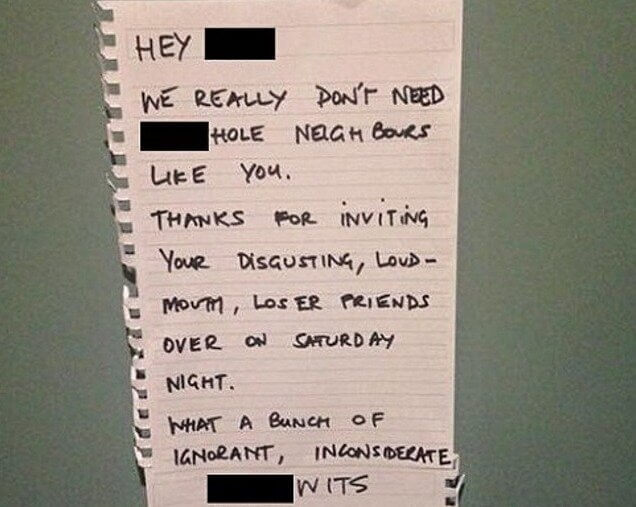 HEY
WE REALLY DON'T NEED
HOLE NEIGHBOURS
LIKE YOU.
THANKS FOR INVITING
YOUR DISGUSTING, LOUD-
MOUTH, LOSER FRIENDS
OVER ON SATURDAY
NIGHT.
WHAT A BUNCH OF
IGNORANT, INCONSIDERATE,
WITS